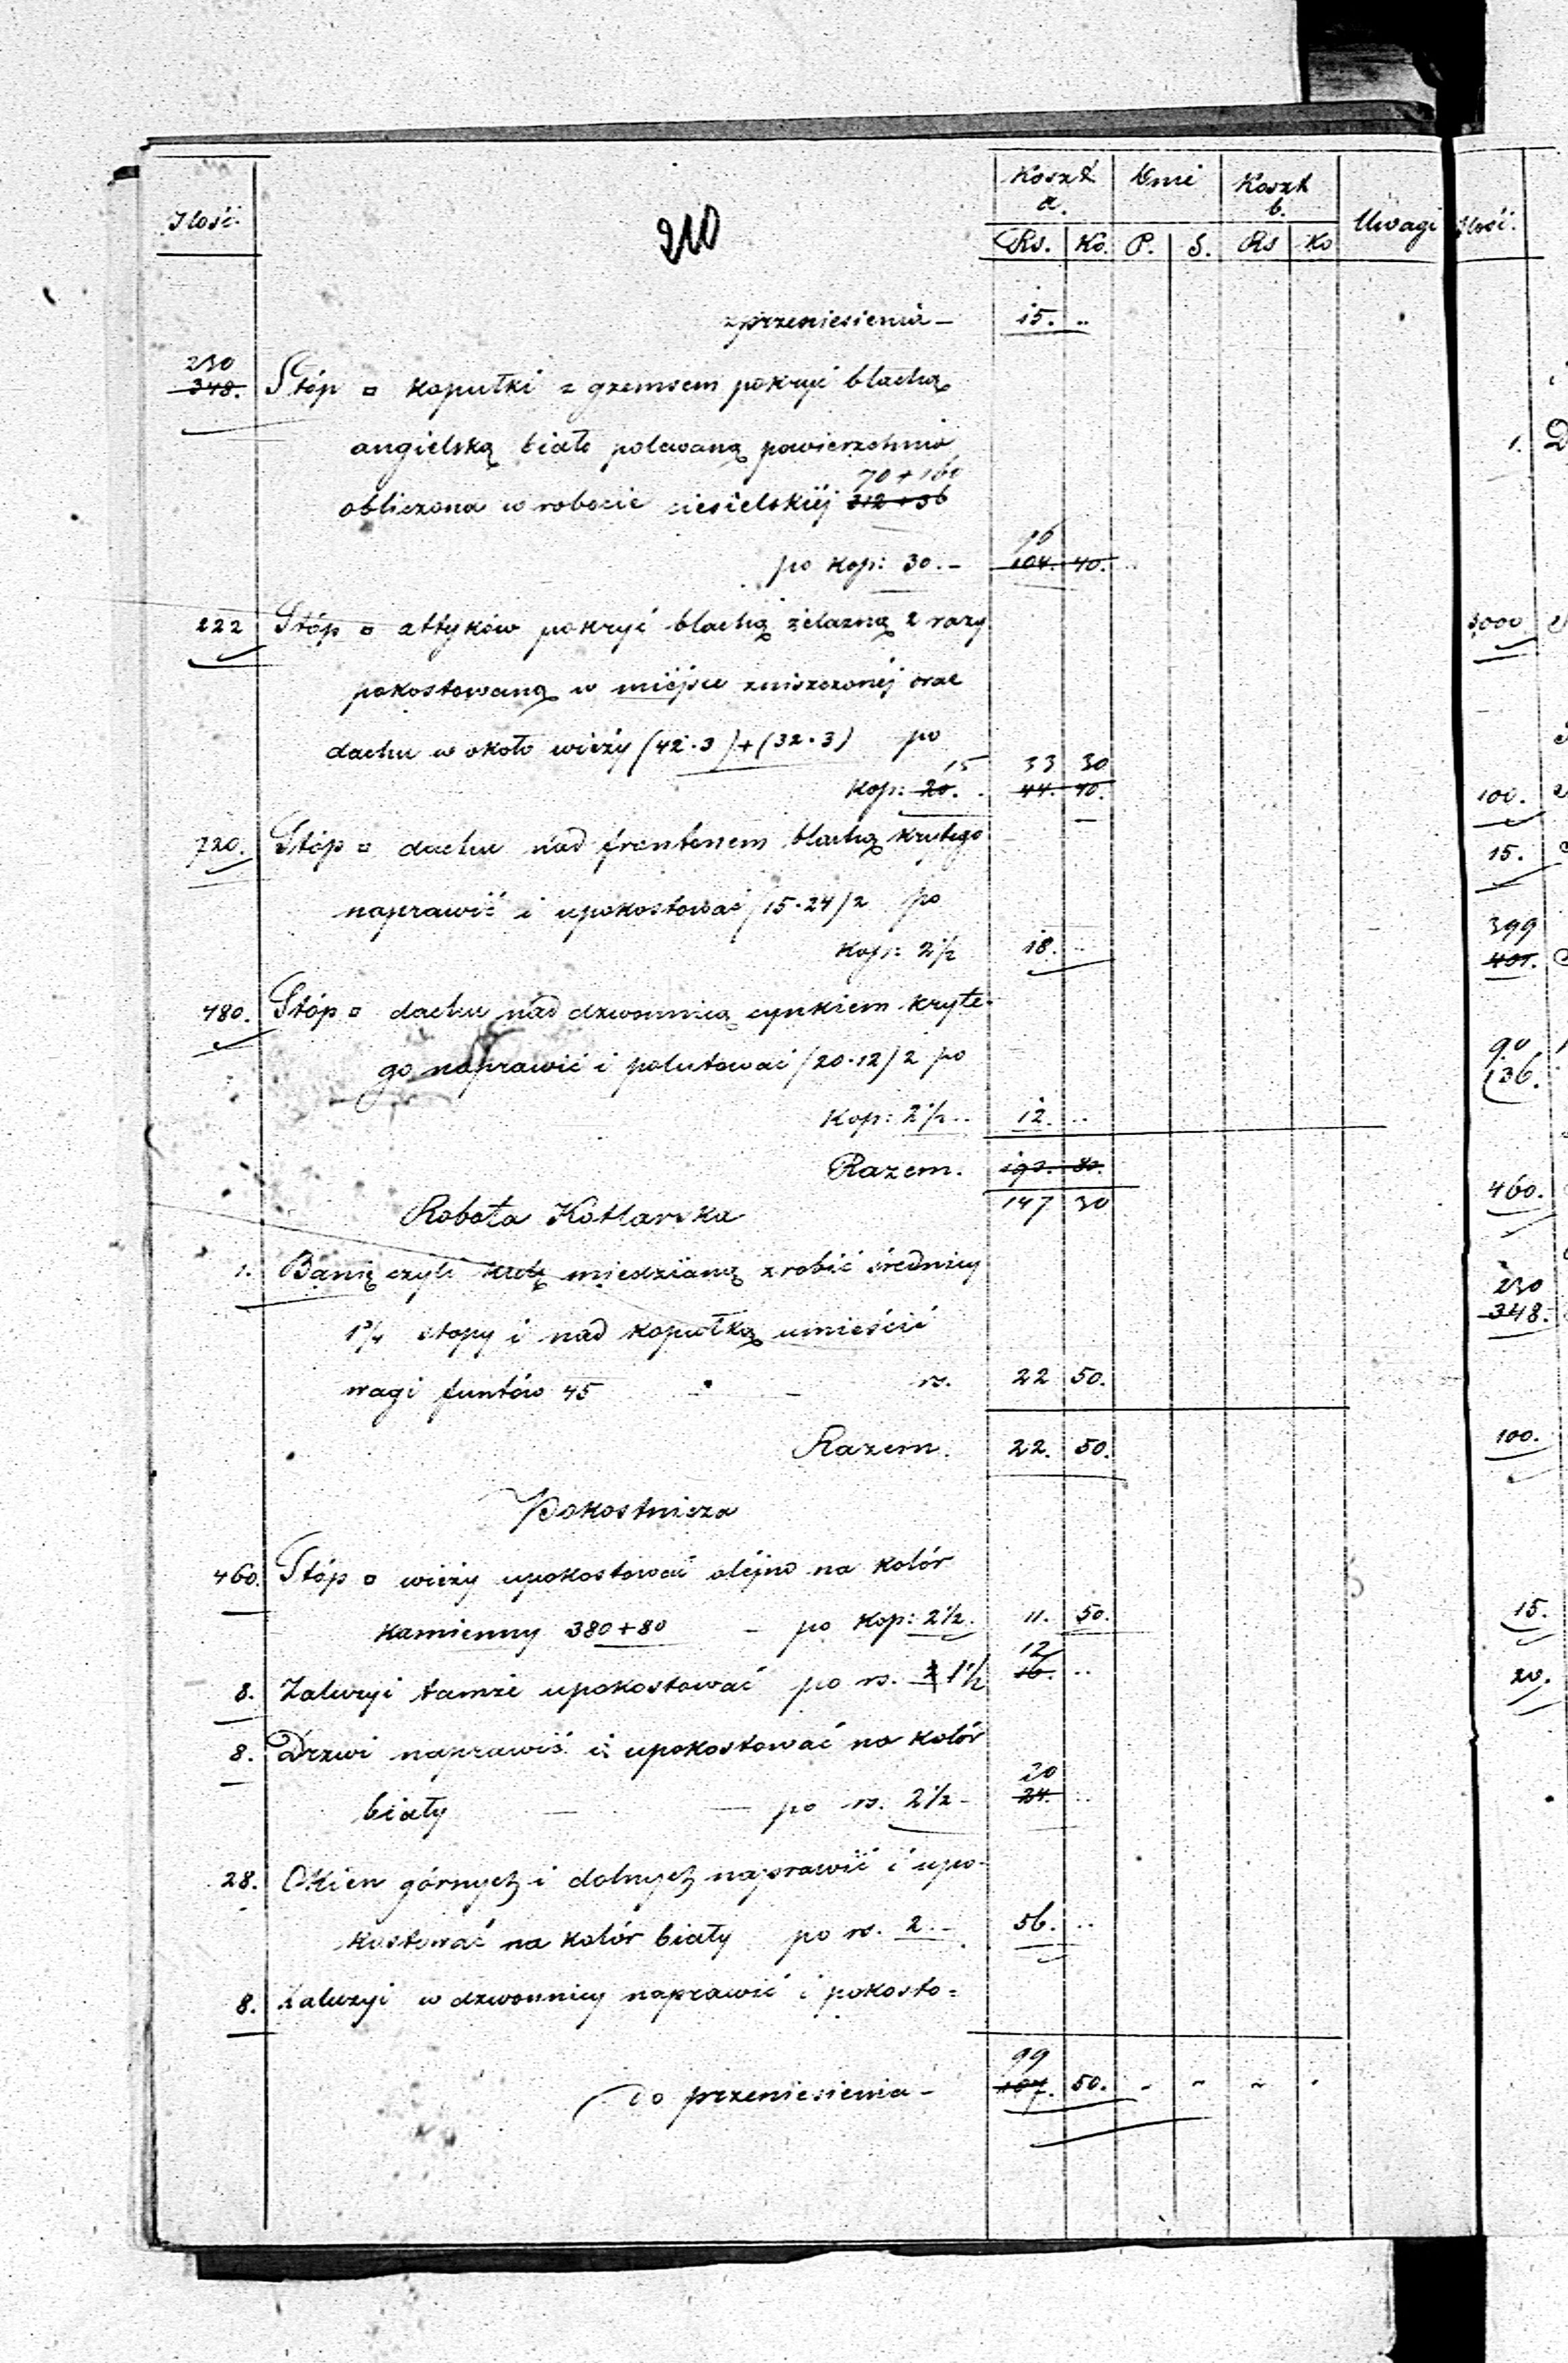 Ilość.
210
Koszt a.
Dnie
Koszt b.
Uwagi
Rs. Ko. P. S. Rs Ko
z przeniesienia – 15. ..
230
348. Stóp □ kopułki z gzemsem pokryć blachą
angielską biało polewaną powierzchnia
70 + 160
obliczona w robocie ciesielskiéj 312 + 36
po kop: 30. – 104. 40.
222 Stóp □ attyków pokryć blachą żelazną 2 razy
pokostowaną w miéjsce zniszczonéj oraz
dachu w około wieży (42·3)+(32·3) po
15 33 30
kop: 20. 44. 40.
720. Stóp □ dachu nad frontonem blachą krytego
naprawić i upokostować (15·24)2 po
kop: 2½ 18. ..
480. Stóp □ dachu nad dzwonnicą cynkiem kryte-
go naprawić i polutować (20·12)2 po
kop: 2½ .. 12. ..
Razem.
147 30
Robota Kotlarska
1. Banię czyli kulę miedzianą zrobić średnicy
1¾ stopy i nad kopułką umieścić
wagi funtów 45 – rs. 22 50.
Razem. 22. 50.
Pokostnicza
460. Stóp □ wieży upokostować oléjno na kolór
kamienny 380+80 – po kop: 2½. 11. 50.
12
8. Żaluzyi tamże upokostować po rs. 2 1½ 16. ..
8. Drzwi naprawić i upokostować na kolór
20
biały — — po rs. 2½ – 24. ..
28. Okien górnych i dolnych naprawić i upo-
kostować na kolór biały po rs. 2. – 56. ..
8. Żaluzyi w dzwonnicy naprawić i pokosto=
99
do przeniesienia – 107. 50. - ~ ~ -
Ilość.
1.
3000
100.
15.
399
401.
90
136.
460.
230
348.
100.
15.
20.